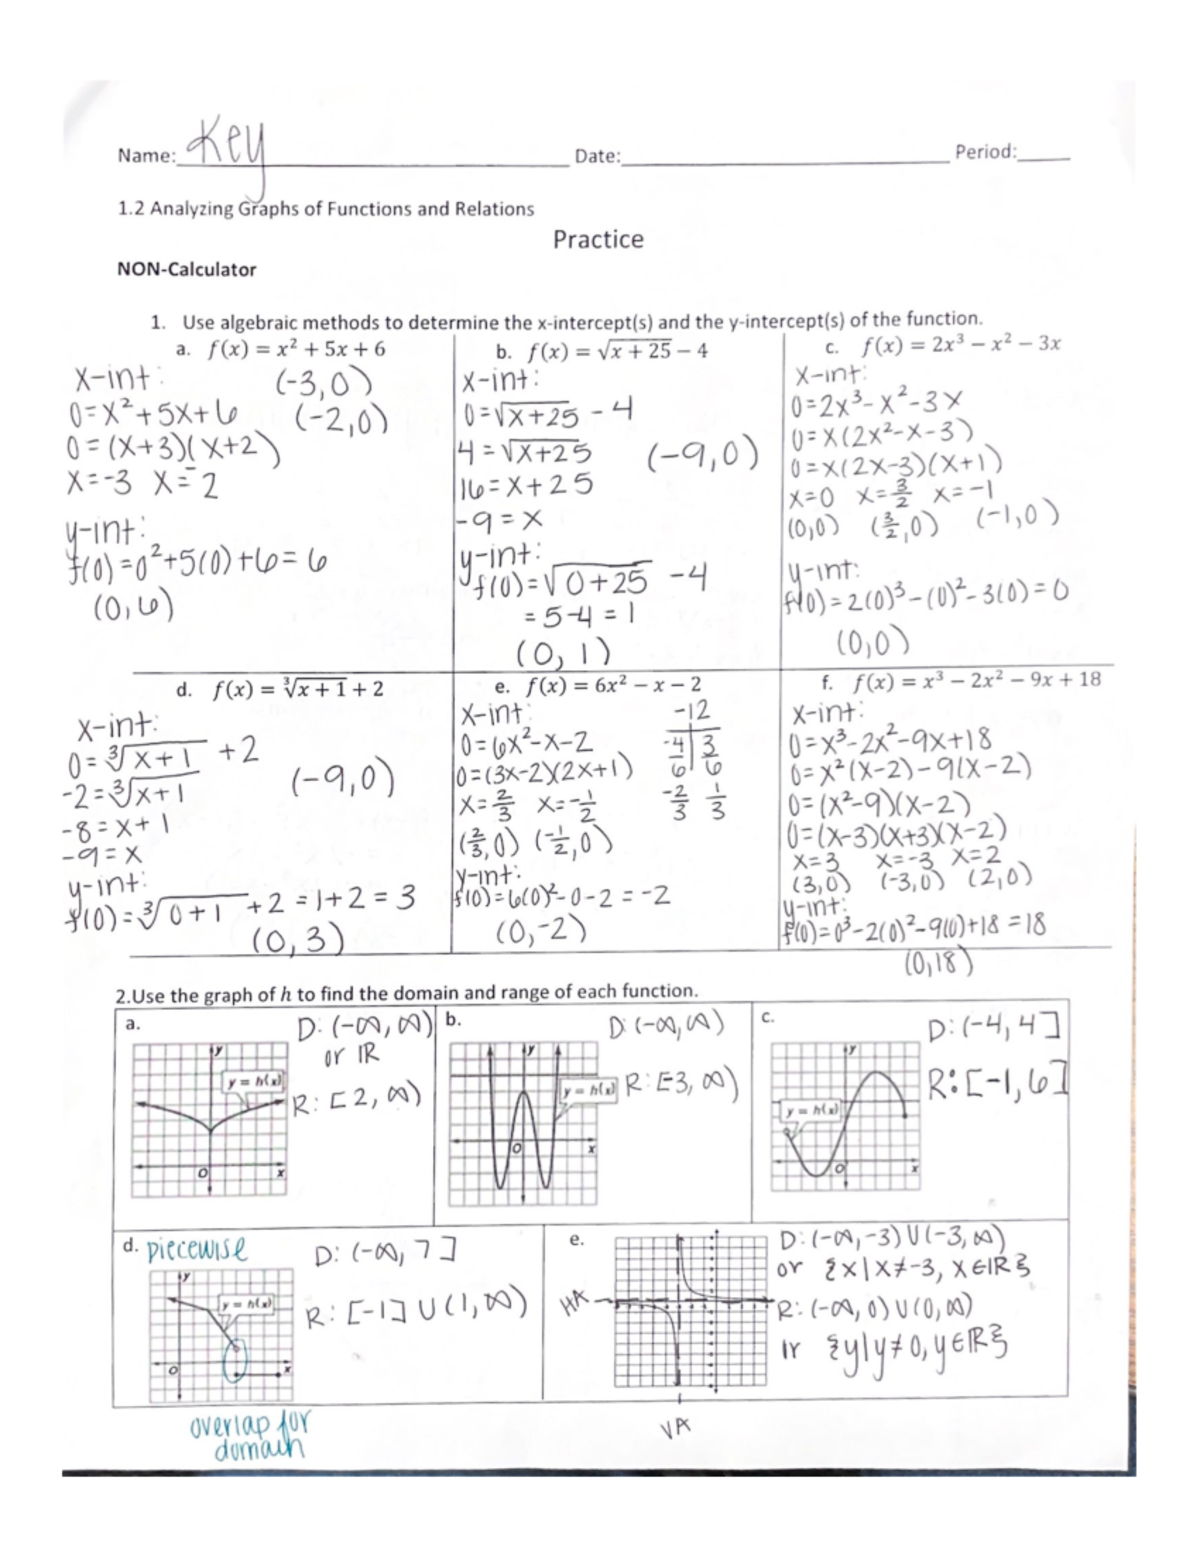 Name: Key Date: Period:
1.2 Analyzing Graphs of Functions and Relations
Practice
NON-Calculator
1. Use algebraic methods to determine the x-intercept(s) and the y-intercept(s) of the function.
a. f(x) = x² + 5x + 6
x-int: (-3,0)
0=x²+5x+6 (-2,0)
0=(x+3)(x+2)
x=-3 x=-2
y-int:
f(0)=0²+5(0)+6=6
(0,6)
b. f(x) = √(x + 25) − 4
x-int:
0=√(x+25) -4
4=√(x+25) (-9,0)
16=x+25
-9=x
y-int:
f(0)=√(0+25) -4
=5-4=1
(0,1)
c. f(x) = 2x³ − x² − 3x
x-int:
0=2x³-x²-3x
0=x(2x²-x-3)
0=x(2x-3)(x+1)
x=0 x=3/2 x=-1
(0,0) (3/2,0) (-1,0)
y-int:
f(0)=2(0)³-(0)²-3(0)=0
(0,0)
d. f(x) = ∛(x + 1) + 2
x-int:
0=∛(x+1) +2
-2=∛(x+1) (-9,0)
-8=x+1
-9=x
y-int:
f(0)=∛(0+1) +2=1+2=3
(0,3)
e. f(x) = 6x² − x − 2
x-int: -12
0=6x²-x-2 -4/6 3/6
0=(3x-2)(2x+1)
x=2/3 x=-1/2 -2/3 1/3
(2/3,0) (-1/2,0)
y-int:
f(0)=6(0)²-0-2=-2
(0,-2)
f. f(x) = x³ − 2x² − 9x + 18
x-int:
0=x³-2x²-9x+18
0=x²(x-2)-9(x-2)
0=(x²-9)(x-2)
0=(x-3)(x+3)(x-2)
x=3 x=-3 x=2
(3,0) (-3,0) (2,0)
y-int:
f(0)=0³-2(0)²-9(0)+18=18
(0,18)
2.Use the graph of h to find the domain and range of each function.
a. D: (-∞,∞)
or IR
R: [2,∞)
y
y = h(x)
O
x
b. D: (-∞,∞)
R: [-3,∞)
y
y = h(x)
O
x
c. D: (-4,4]
R: [-1,6]
y
y = h(x)
O
x
d. piecewise D: (-∞,7]
R: [-1] U (1,∞)
y
y = h(x)
O
x
overlap for
domain
e. D: (-∞,-3) U (-3,∞)
or {x|x≠-3, x∈IR}
HA R: (-∞,0) U (0,∞)
Ir {y|y≠0, y∈IR}
VA